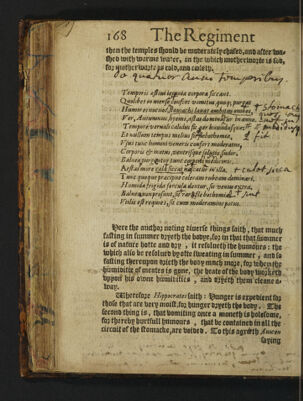 168 The Regiment
then the temples should be moderately chafed, and after wa-
shed with warme water, in the which motherworte is sod,
for motherworte is cold, and cooleth.
De quatuor Anni temporibus.
Temporis æstiui ieiunia corpora siccant.
Quolibet in mense confert vomitus quoq; purgat
stomach
quos
Ver, Autumnus, hyems, æstas dominantur in anno.
Tempore vernali calidus fit aer humidusq;
Et nullum tempus melius fit phlebothomiæ. fit
Vsus tunc homini veneris confert moderatus,
Corporis & motus, ventrisque solutio, sudor,
Balnea, purgentur tunc corpora medicinis.
Æstas more calet sicca nascatur in illa, calet sicca
Tunc quoque præcipue coleram rubeam dominari.
Humida, frigida fercula dentur, sit venus extra,
Balnea non prosunt, sit rara phlebothomia sint
Vtilis est requies, sit cum moderamine potus.
Here the author noting diverse things saith, that much
fasting in summer dryeth the body, for in that that summer
is of nature hotte and dry, it resolueth the humours: the
which also be resolued by ofte sweating in summer, and so
fasting thereupon dryeth the body much more, for when the
humiditie of meates is gone, the heate of the body worketh
vppon his owne humidities, and dryeth them cleane a-
way.
Wherefore Hippocrates saith: Hunger is expedient for
those that are very moist, for hunger dryeth the body. The
second thing is, that vomiting once a moneth is holesome,
for thereby hurtfull humours, that be contained in all the
circuit of the stomacke, are voided. To this agreeth Auicen
saying